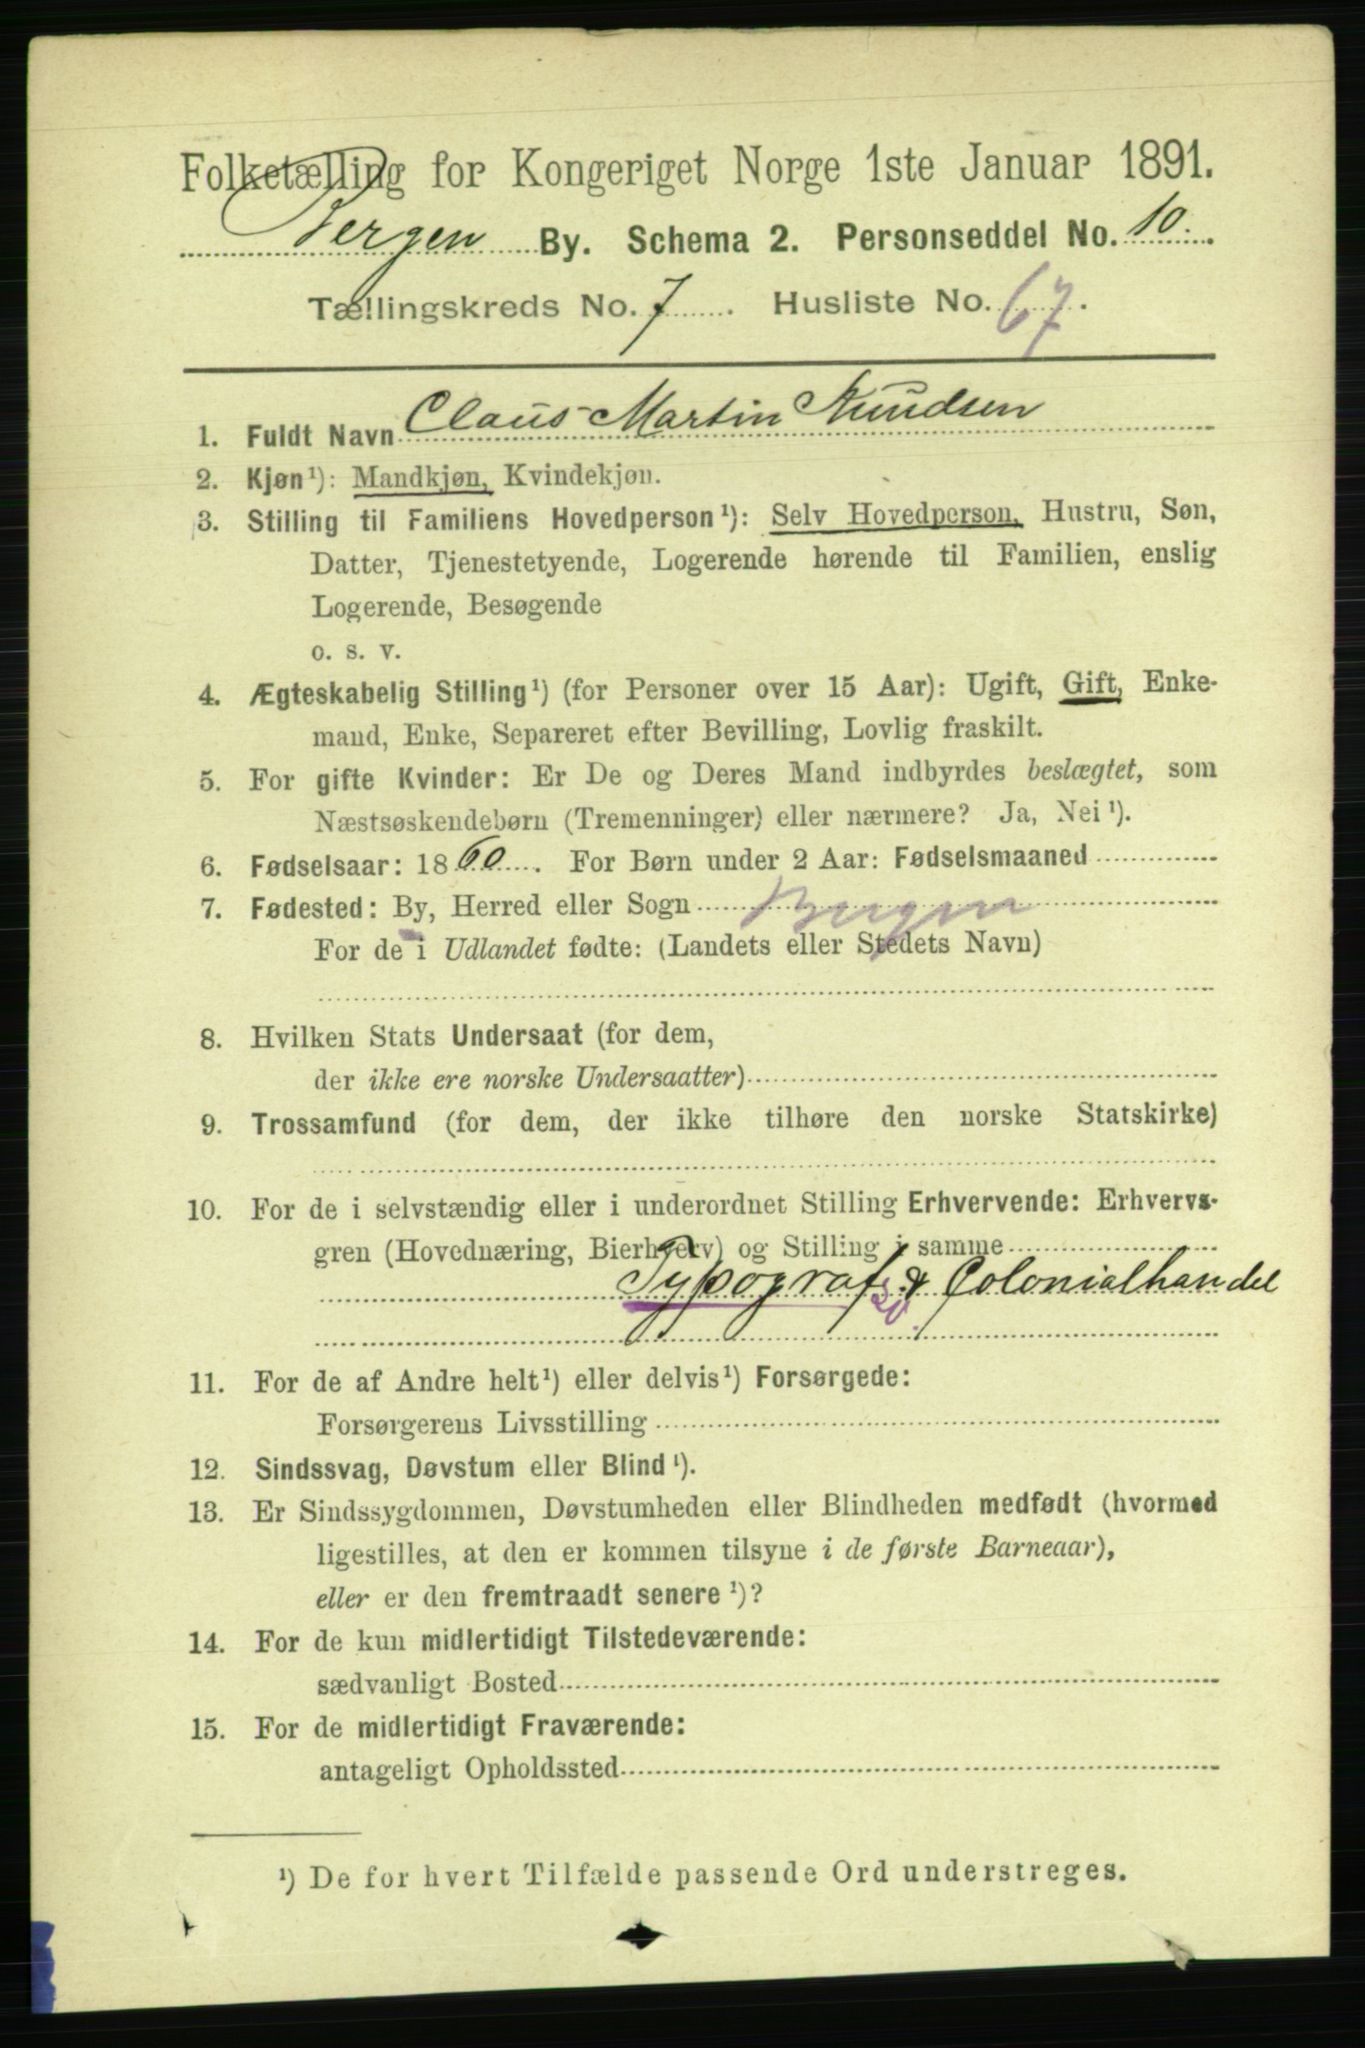 Folketælling for Kongeriget Norge 1ste Januar 1891.
Bergen By. Schema 2. Personseddel No. 10.
Tællingskreds No. 7. Husliste No. 67.
1. Fuldt Navn Claus Martin Knudsen
2. Kjøn¹): Mandkjøn, Kvindekjøn.
3. Stilling til Familiens Hovedperson¹): Selv Hovedperson, Hustru, Søn,
Datter, Tjenestetyende, Logerende hørende til Familien, enslig
Logerende, Besøgende
o. s. v.
4. Ægteskabelig Stilling¹) (for Personer over 15 Aar): Ugift, Gift, Enke-
mand, Enke, Separeret efter Bevilling, Lovlig fraskilt.
5. For gifte Kvinder: Er De og Deres Mand indbyrdes beslægtet, som
Næstsøskendebørn (Tremenninger) eller nærmere? Ja, Nei¹).
6. Fødselsaar: 1860. For Børn under 2 Aar: Fødselsmaaned
7. Fødested: By, Herred eller Sogn Bergen
For de i Udlandet fødte: (Landets eller Stedets Navn)
8. Hvilken Stats Undersaat (for dem,
der ikke ere norske Undersaatter)
9. Trossamfund (for dem, der ikke tilhøre den norske Statskirke)
10. For de i selvstændig eller i underordnet Stilling Erhvervende: Erhvervs-
gren (Hovednæring, Bierhverv) og Stilling i samme
Typograf & Colonialhandel
11. For de af Andre helt¹) eller delvis¹) Forsørgede:
Forsørgerens Livsstilling
12. Sindssvag, Døvstum eller Blind¹).
13. Er Sindssygdommen, Døvstumheden eller Blindheden medfødt (hvormed
ligestilles, at den er kommen tilsyne i de første Barneaar),
eller er den fremtraadt senere¹)?
14. For de kun midlertidigt Tilstedeværende:
sædvanligt Bosted
15. For de midlertidigt Fraværende:
antageligt Opholdssted
¹) De for hvert Tilfælde passende Ord understreges.